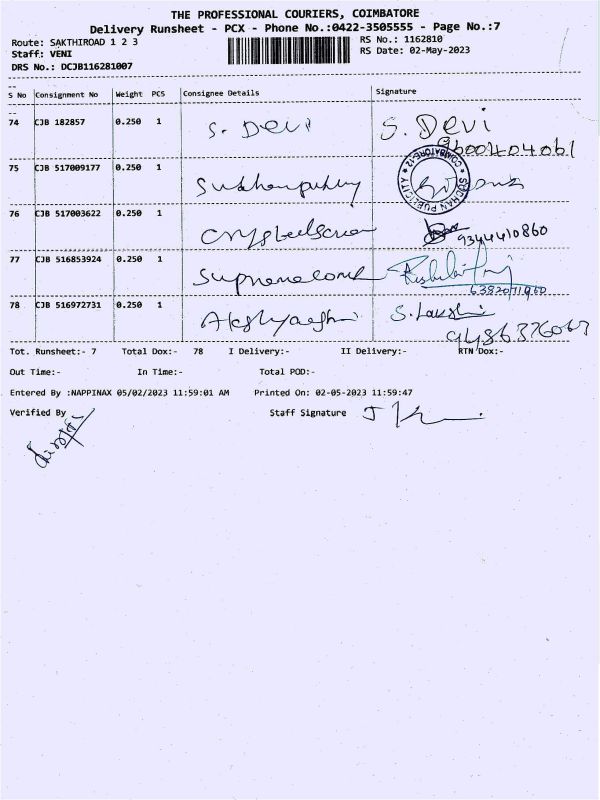 THE PROFESSIONAL COURIERS, COIMBATORE
Delivery Runsheet - PCX - Phone No.:0422-3505555 - Page No.:7
Route: SAKTHIROAD 1 2 3
RS No.: 1162810
Staff: VENI
RS Date: 02-May-2023
DRS No.: DCJB116281007
S No Consignment No Weight PCS Consignee Details Signature
74 CJB 182857 0.250 1 S. Devi S. Devi
9600404061
75 CJB 517009177 0.250 1
COIMBATORE-12 SUDHAN PUBLICITY
76 CJB 517003622 0.250 1
9344410860
77 CJB 516853924 0.250 1
78 CJB 516972731 0.250 1
Tot. Runsheet:- 7 Total Dox:- 78 I Delivery:- II Delivery:- RTN Dox:-
Out Time:- In Time:- Total POD:-
Entered By :NAPPINAX 05/02/2023 11:59:01 AM Printed On: 02-05-2023 11:59:47
Verified By Staff Signature